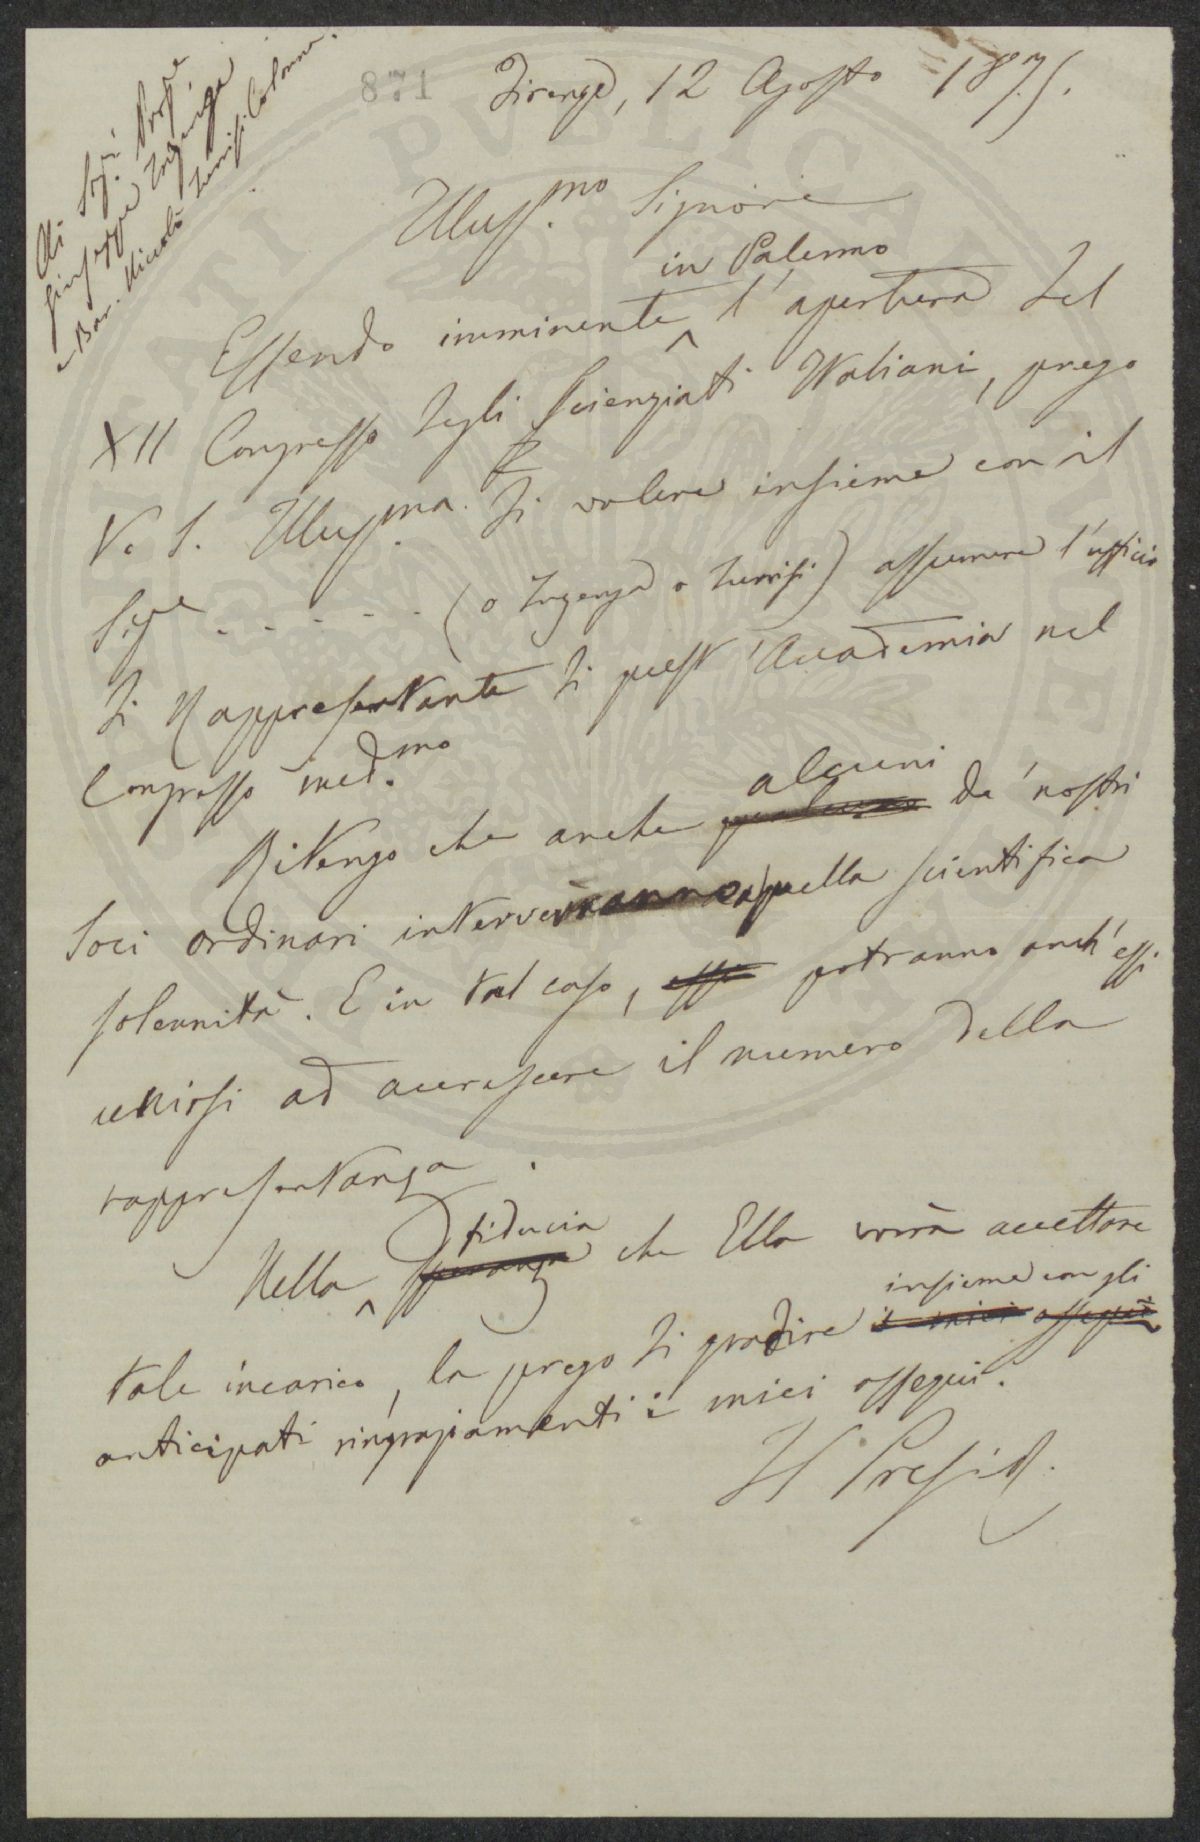 Ai Sigi. Profe.
Giuseppe Inzenga
e Bar. Niccolò Turrisi Colonna.
871
Firenze, 12 Agosto 1875.
Illuss.mo Signore
in Palermo
Essendo imminente ^ l'apertura del
XII Congresso degli Scienziati Italiani, prego
V. S. Illuss.ma. di volere insieme con il
Sige ...... (o Inzenga o Turrisi) assumere l'ufficio
di Rappresentante di quest'Accademia nel
Congresso med.mo
alcuni
Ritengo che anche de' nostri
Soci ordinari interverranno a quella scientifica
solennità. E in tal caso, essi potranno anch'essi
unirsi ad accrescere il numero della
rappresentanza.
fiducia
Nella ^ speranza che Ella vorrà accettare
insieme con gli
tale incarico, la prego di gradire i miei ossequi
anticipati ringraziamenti i miei ossequi.
Il Presid.
PVBLICAE